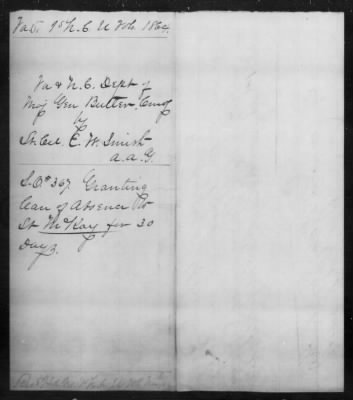 9th N.C. U Vols 1864.
Va & N.C. Dept of
Maj Gen Butler, Comg
by
Lt. Col. E. W. Smith
A.A.G.
S.O# 367. Granting
Leav of Absence to
Lt McKay for 30
Days.